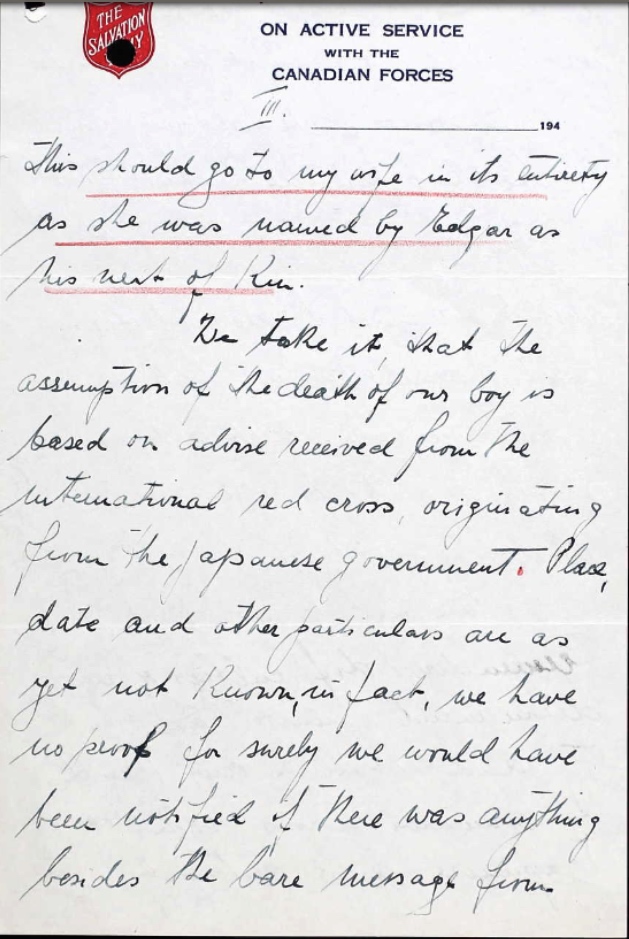 THE
SALVATION
ARMY
ON ACTIVE SERVICE
WITH THE
CANADIAN FORCES
III.
194
This should go to my wife in its entirety
as she was named by Edgar as
his next of Kin.
We take it, that the
assumption of the death of our boy is
based on advise received from the
international red cross, originating
from the japanese government. Place,
date and other particulars are as
yet not Known, in fact, we have
no proof for surely we would have
been notified if there was anything
besides the bare message from